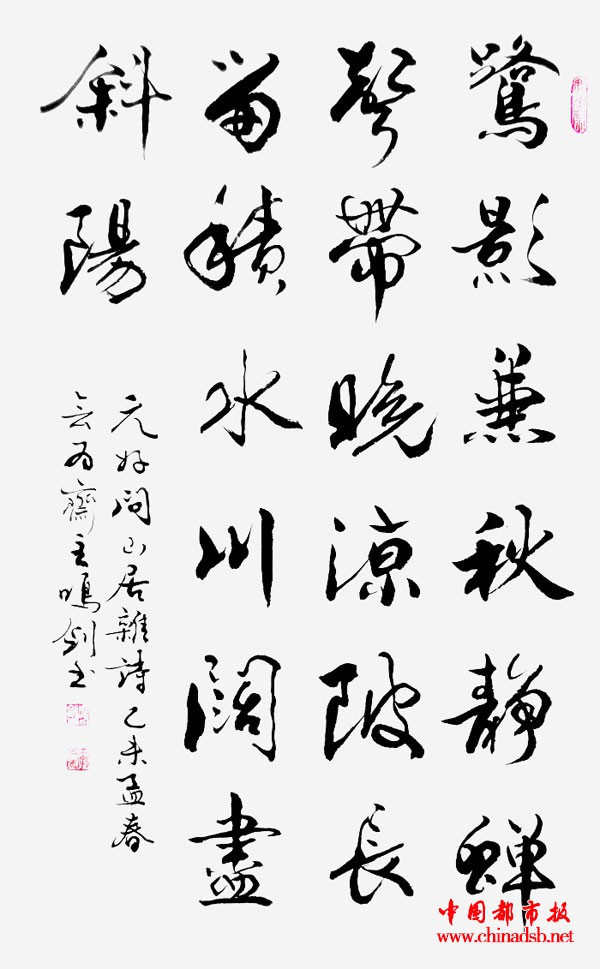 鷺影兼秋靜蟬
聲帶晚涼陂長
留積水川闊盡
斜陽
元好問山居雜詩乙未孟春
为齋主鳴劍书
中国都市报
www.chinadsb.net